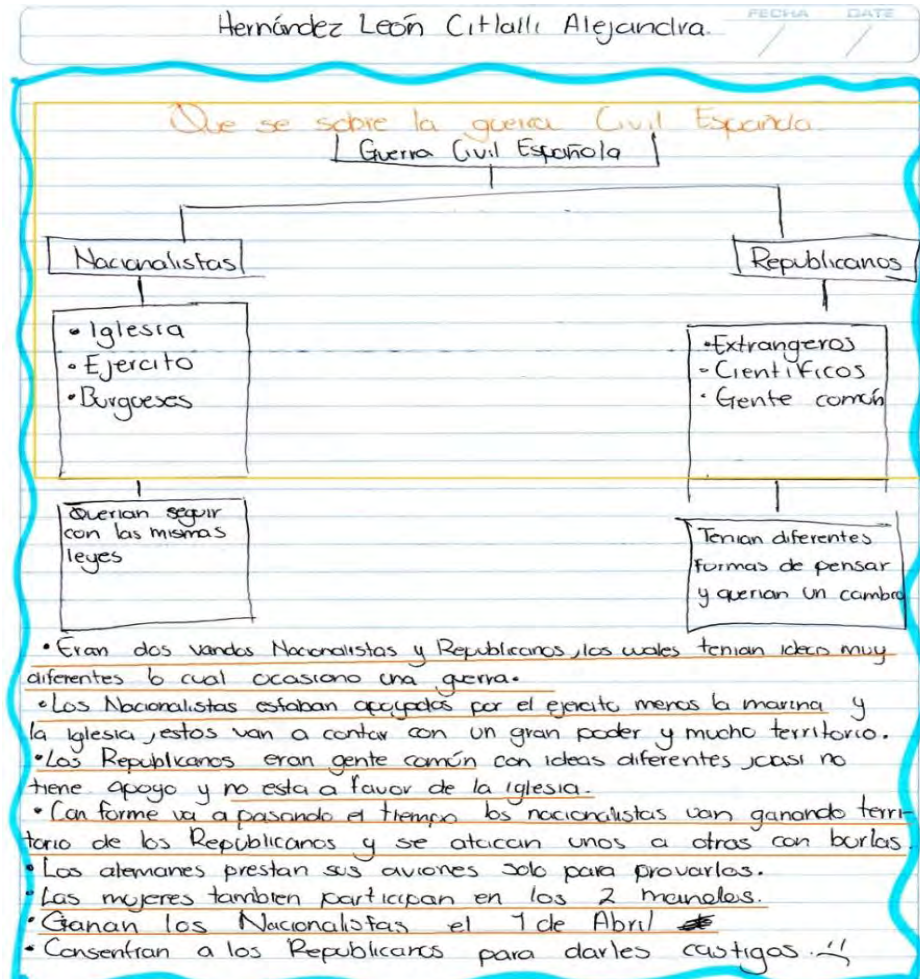 FECHA DATE
Hernández León Citlalli Alejandra.
Que se sobre la guerra Civil Española.
Guerra Civil Española
Nacionalistas
Republicanos
• Iglesia
• Ejercito
• Burgueses
• Extrangeros
• Cientificos
• Gente común
Querian seguir
con las mismas
leyes
Tenian diferentes
formas de pensar
y querian un cambio
• Eran dos vandos Nacionalistas y Republicanos, los cuales tenian ideas muy
diferentes lo cual ocasiono una guerra.
• Los Nacionalistas estaban apoyados por el ejercito menos la marina y
la iglesia, estos van a contar con un gran poder y mucho territorio.
• Los Republicanos eran gente común con ideas diferentes, casi no
tiene apoyo y no esta a favor de la iglesia.
• Con forme va a pasando el tiempo los nacionalistas van ganando terri-
torio de los Republicanos y se atacan unos a otros con burlas.
• Los alemanes prestan sus aviones solo para provarlos.
• Las mujeres tambien participan en los 2 mandos.
• Ganan los Nacionalistas el 1 de Abril
• Consentran a los Republicanos para darles castigos.